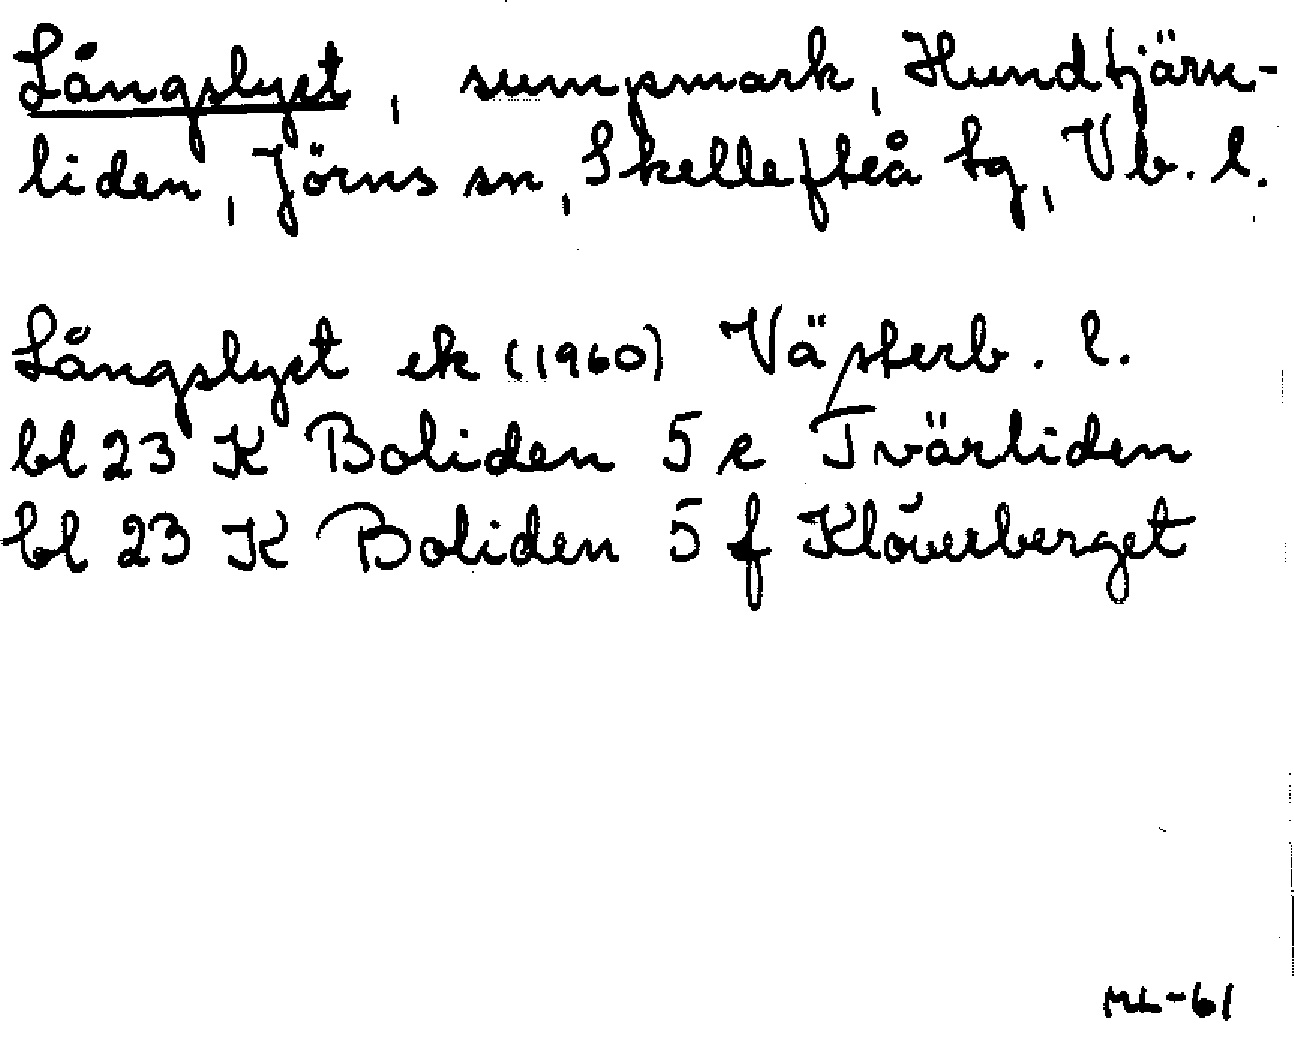 Långslyet, sumpmark, Hundtjärn-
liden, Jörns sn, Skellefteå tg, Vb. l.
Långslyet ek (1960) Västerb. l.
bl 23 K Boliden 5 e Tvärliden
bl 23 K Boliden 5 f Klöverberget
ML-61